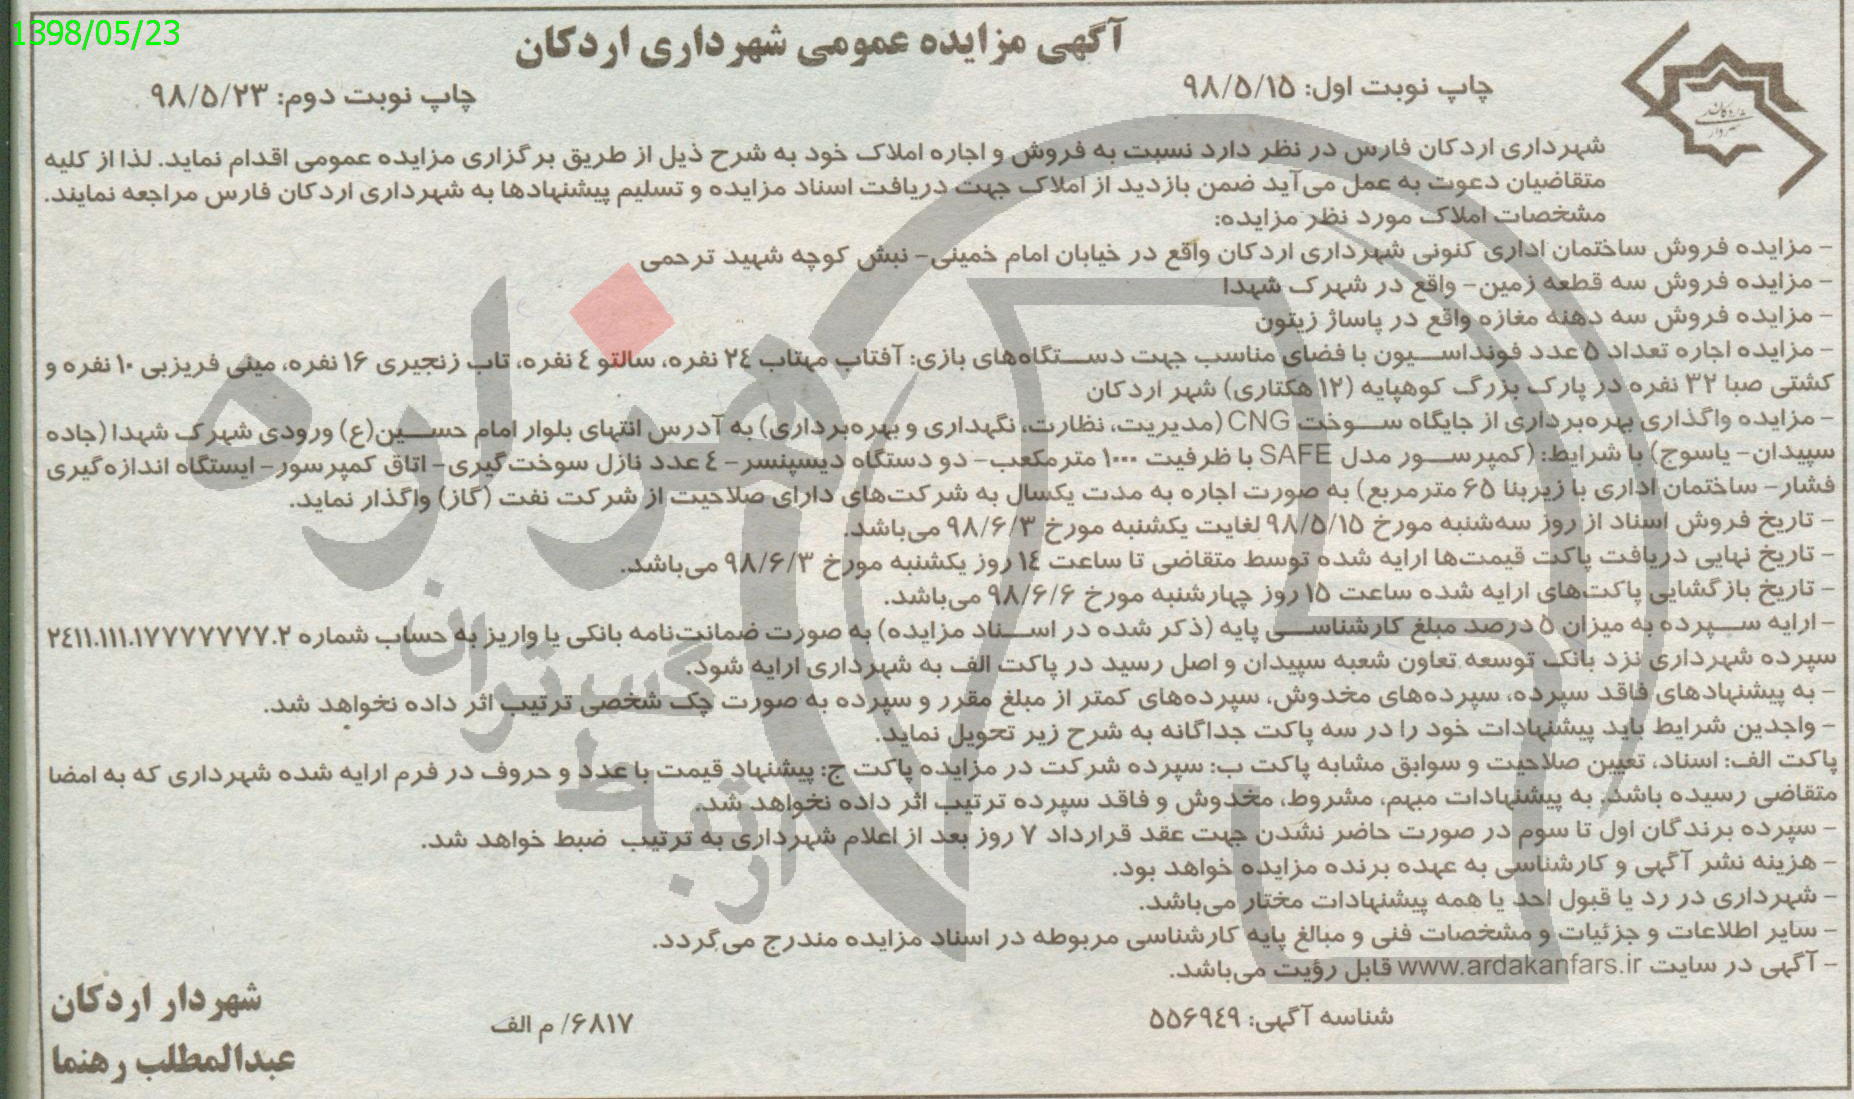 1398/05/23
آگهی مزایده عمومی شهرداری اردکان
چاپ نوبت اول: ۹۸/۵/۱۵
چاپ نوبت دوم: ۹۸/۵/۲۳
شهرداری اردکان فارس در نظر دارد نسبت به فروش و اجاره املاک خود به شرح ذیل از طریق برگزاری مزایده عمومی اقدام نماید. لذا از کلیه
متقاضیان دعوت به عمل می‌آید ضمن بازدید از املاک جهت دریافت اسناد مزایده و تسلیم پیشنهادها به شهرداری اردکان فارس مراجعه نمایند.
مشخصات املاک مورد نظر مزایده:
- مزایده فروش ساختمان اداری کنونی شهرداری اردکان واقع در خیابان امام خمینی- نبش کوچه شهید ترحمی
- مزایده فروش سه قطعه زمین- واقع در شهرک شهدا
- مزایده فروش سه دهنه مغازه واقع در پاساژ زیتون
- مزایده اجاره تعداد ۵ عدد فونداسیون با فضای مناسب جهت دستگاه‌های بازی: آفتاب مهتاب ۲٤ نفره، سالتو ٤ نفره، تاب زنجیری ۱۶ نفره، مینی فریزبی ۱۰ نفره و
کشتی صبا ۳۲ نفره در پارک بزرگ کوهپایه (۱۲ هکتاری) شهر اردکان
- مزایده واگذاری بهره‌برداری از جایگاه سوخت CNG (مدیریت، نظارت، نگهداری و بهره‌برداری) به آدرس انتهای بلوار امام حسین(ع) ورودی شهرک شهدا (جاده
سپیدان- یاسوج) با شرایط: (کمپرسور مدل SAFE با ظرفیت ۱۰۰۰ مترمکعب- دو دستگاه دیسپنسر- ٤ عدد نازل سوخت‌گیری- اتاق کمپرسور- ایستگاه اندازه‌گیری
فشار- ساختمان اداری با زیربنا ۶۵ مترمربع) به صورت اجاره به مدت یکسال به شرکت‌های دارای صلاحیت از شرکت نفت (گاز) واگذار نماید.
- تاریخ فروش اسناد از روز سه‌شنبه مورخ ۹۸/۵/۱۵ لغایت یکشنبه مورخ ۹۸/۶/۳ می‌باشد.
- تاریخ نهایی دریافت پاکت قیمت‌ها ارایه شده توسط متقاضی تا ساعت ۱٤ روز یکشنبه مورخ ۹۸/۶/۳ می‌باشد.
- تاریخ بازگشایی پاکت‌های ارایه شده ساعت ۱۵ روز چهارشنبه مورخ ۹۸/۶/۶ می‌باشد.
- ارایه سپرده به میزان ۵ درصد مبلغ کارشناسی پایه (ذکر شده در اسناد مزایده) به صورت ضمانت‌نامه بانکی یا واریز به حساب شماره ۲٤۱۱.۱۱۱.۱۷۷۷۷۷۷۷.۲
سپرده شهرداری نزد بانک توسعه تعاون شعبه سپیدان و اصل رسید در پاکت الف به شهرداری ارایه شود.
- به پیشنهادهای فاقد سپرده، سپرده‌های مخدوش، سپرده‌های کمتر از مبلغ مقرر و سپرده به صورت چک شخصی ترتیب اثر داده نخواهد شد.
- واجدین شرایط باید پیشنهادات خود را در سه پاکت جداگانه به شرح زیر تحویل نماید.
پاکت الف: اسناد، تعیین صلاحیت و سوابق مشابه پاکت ب: سپرده شرکت در مزایده پاکت ج: پیشنهاد قیمت با عدد و حروف در فرم ارایه شده شهرداری که به امضا
متقاضی رسیده باشد. به پیشنهادات مبهم، مشروط، مخدوش و فاقد سپرده ترتیب اثر داده نخواهد شد.
- سپرده برندگان اول تا سوم در صورت حاضر نشدن جهت عقد قرارداد ۷ روز بعد از اعلام شهرداری به ترتیب ضبط خواهد شد.
- هزینه نشر آگهی و کارشناسی به عهده برنده مزایده خواهد بود.
- شهرداری در رد یا قبول احد یا همه پیشنهادات مختار می‌باشد.
- سایر اطلاعات و جزئیات و مشخصات فنی و مبالغ پایه کارشناسی مربوطه در اسناد مزایده مندرج می‌گردد.
- آگهی در سایت www.ardakanfars.ir قابل رؤیت می‌باشد.
شناسه آگهی: ۵۵۶۹٤۹
۶۸۱۷/ م الف
شهردار اردکان
عبدالمطلب رهنما
هزاره
گستران
ارتباط